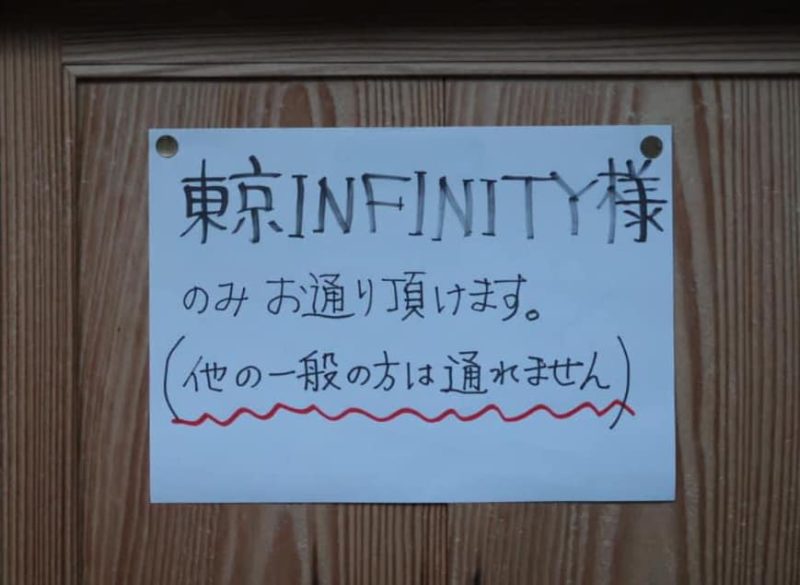 東京INFINITY様
のみ お通り頂けます。
(他の一般の方は通れません)